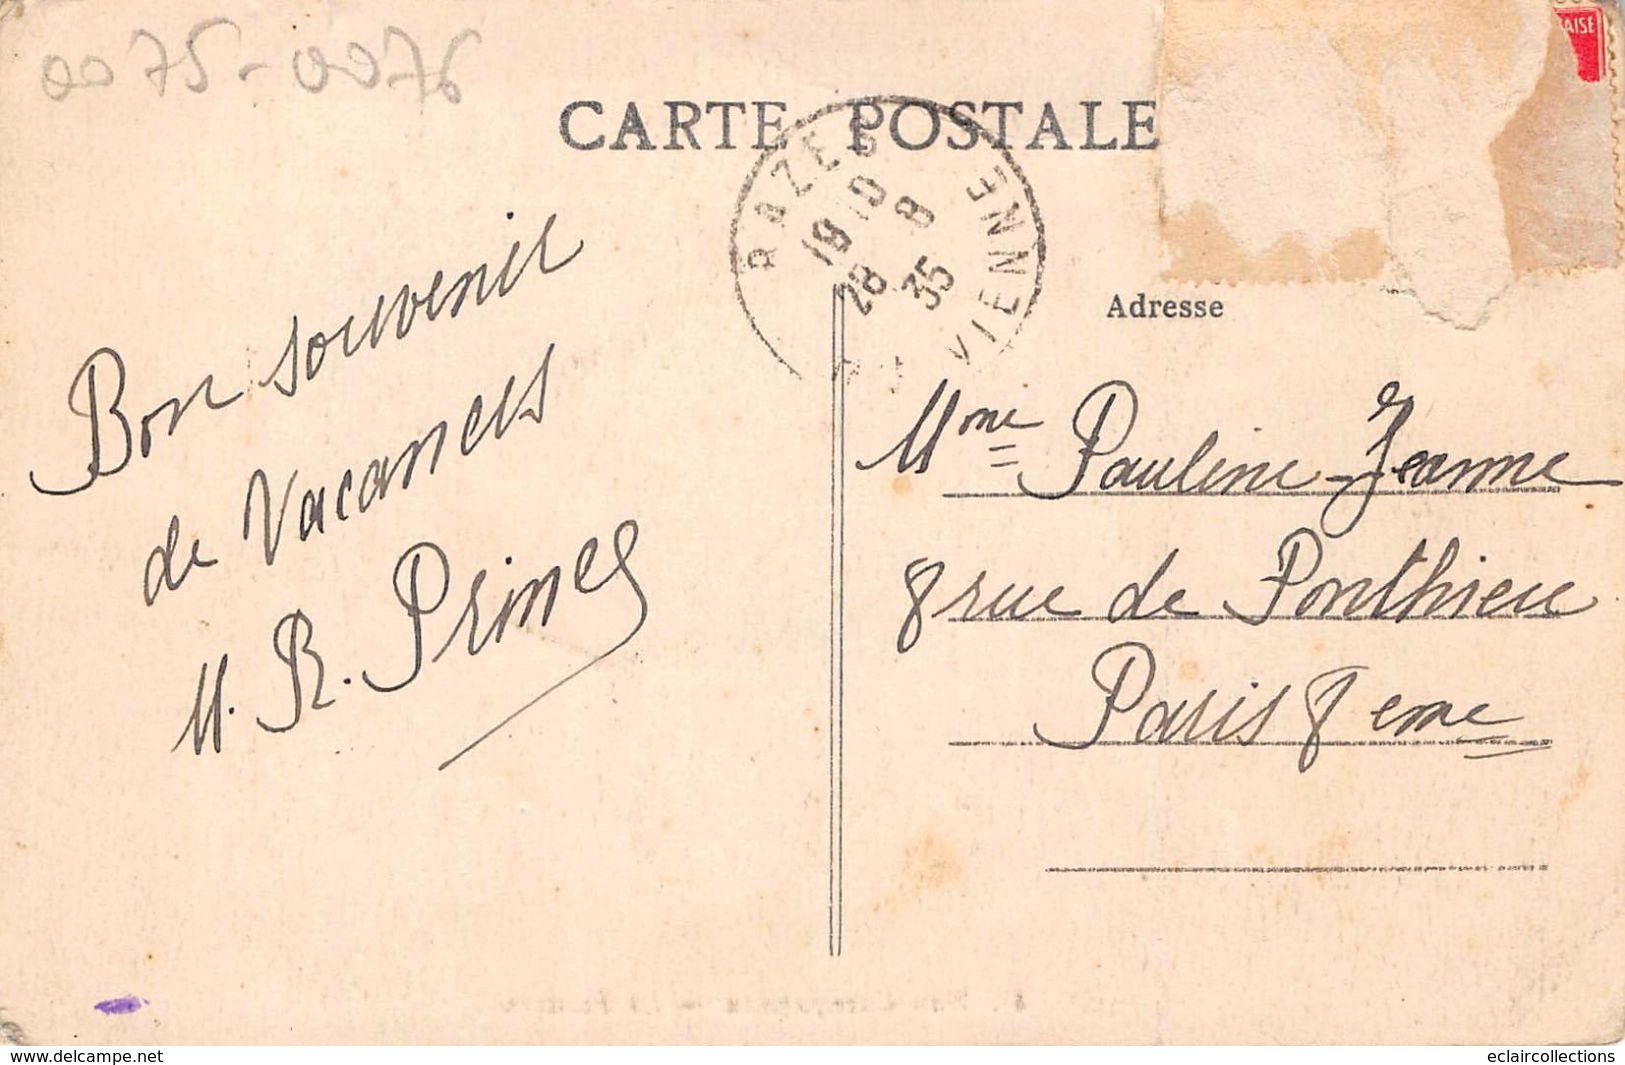 0075-0076
CARTE POSTALE
AISE
RAZES
19 10
28 8
35
VIENNE
Adresse
Bon souvenir
de Vacances
M. R. Prince
Mme Pauline-Jeanne
8 rue de Ponthieu
Paris 8eme
www.delcampe.net
eclaircollections